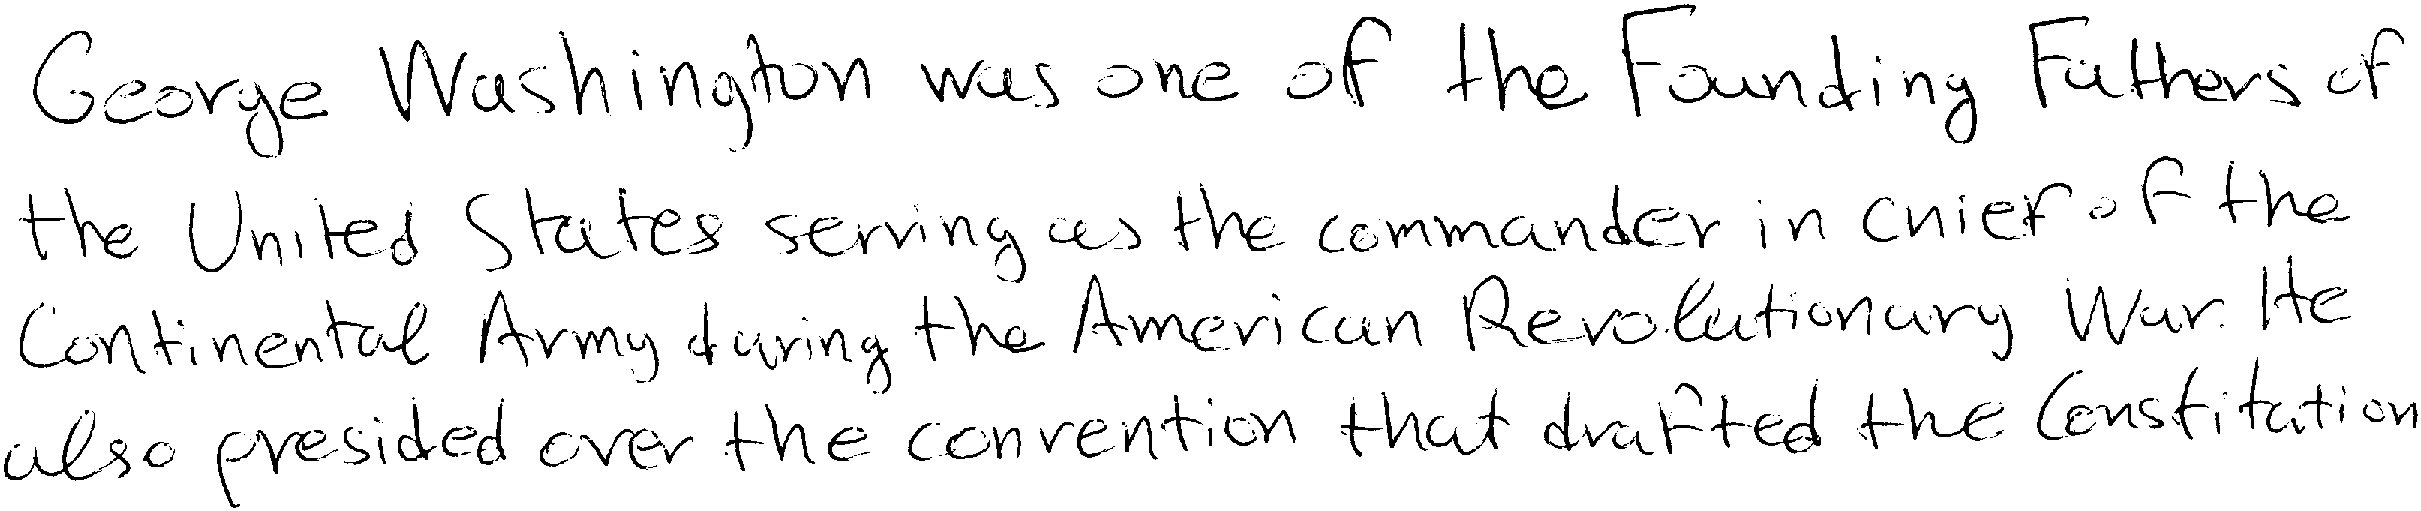 George Washington was one of the Founding Fathers of
the United States serving as the commander in chief of the
Continental Army during the American Revolutionary War. He
also presided over the convention that drafted the Constitution